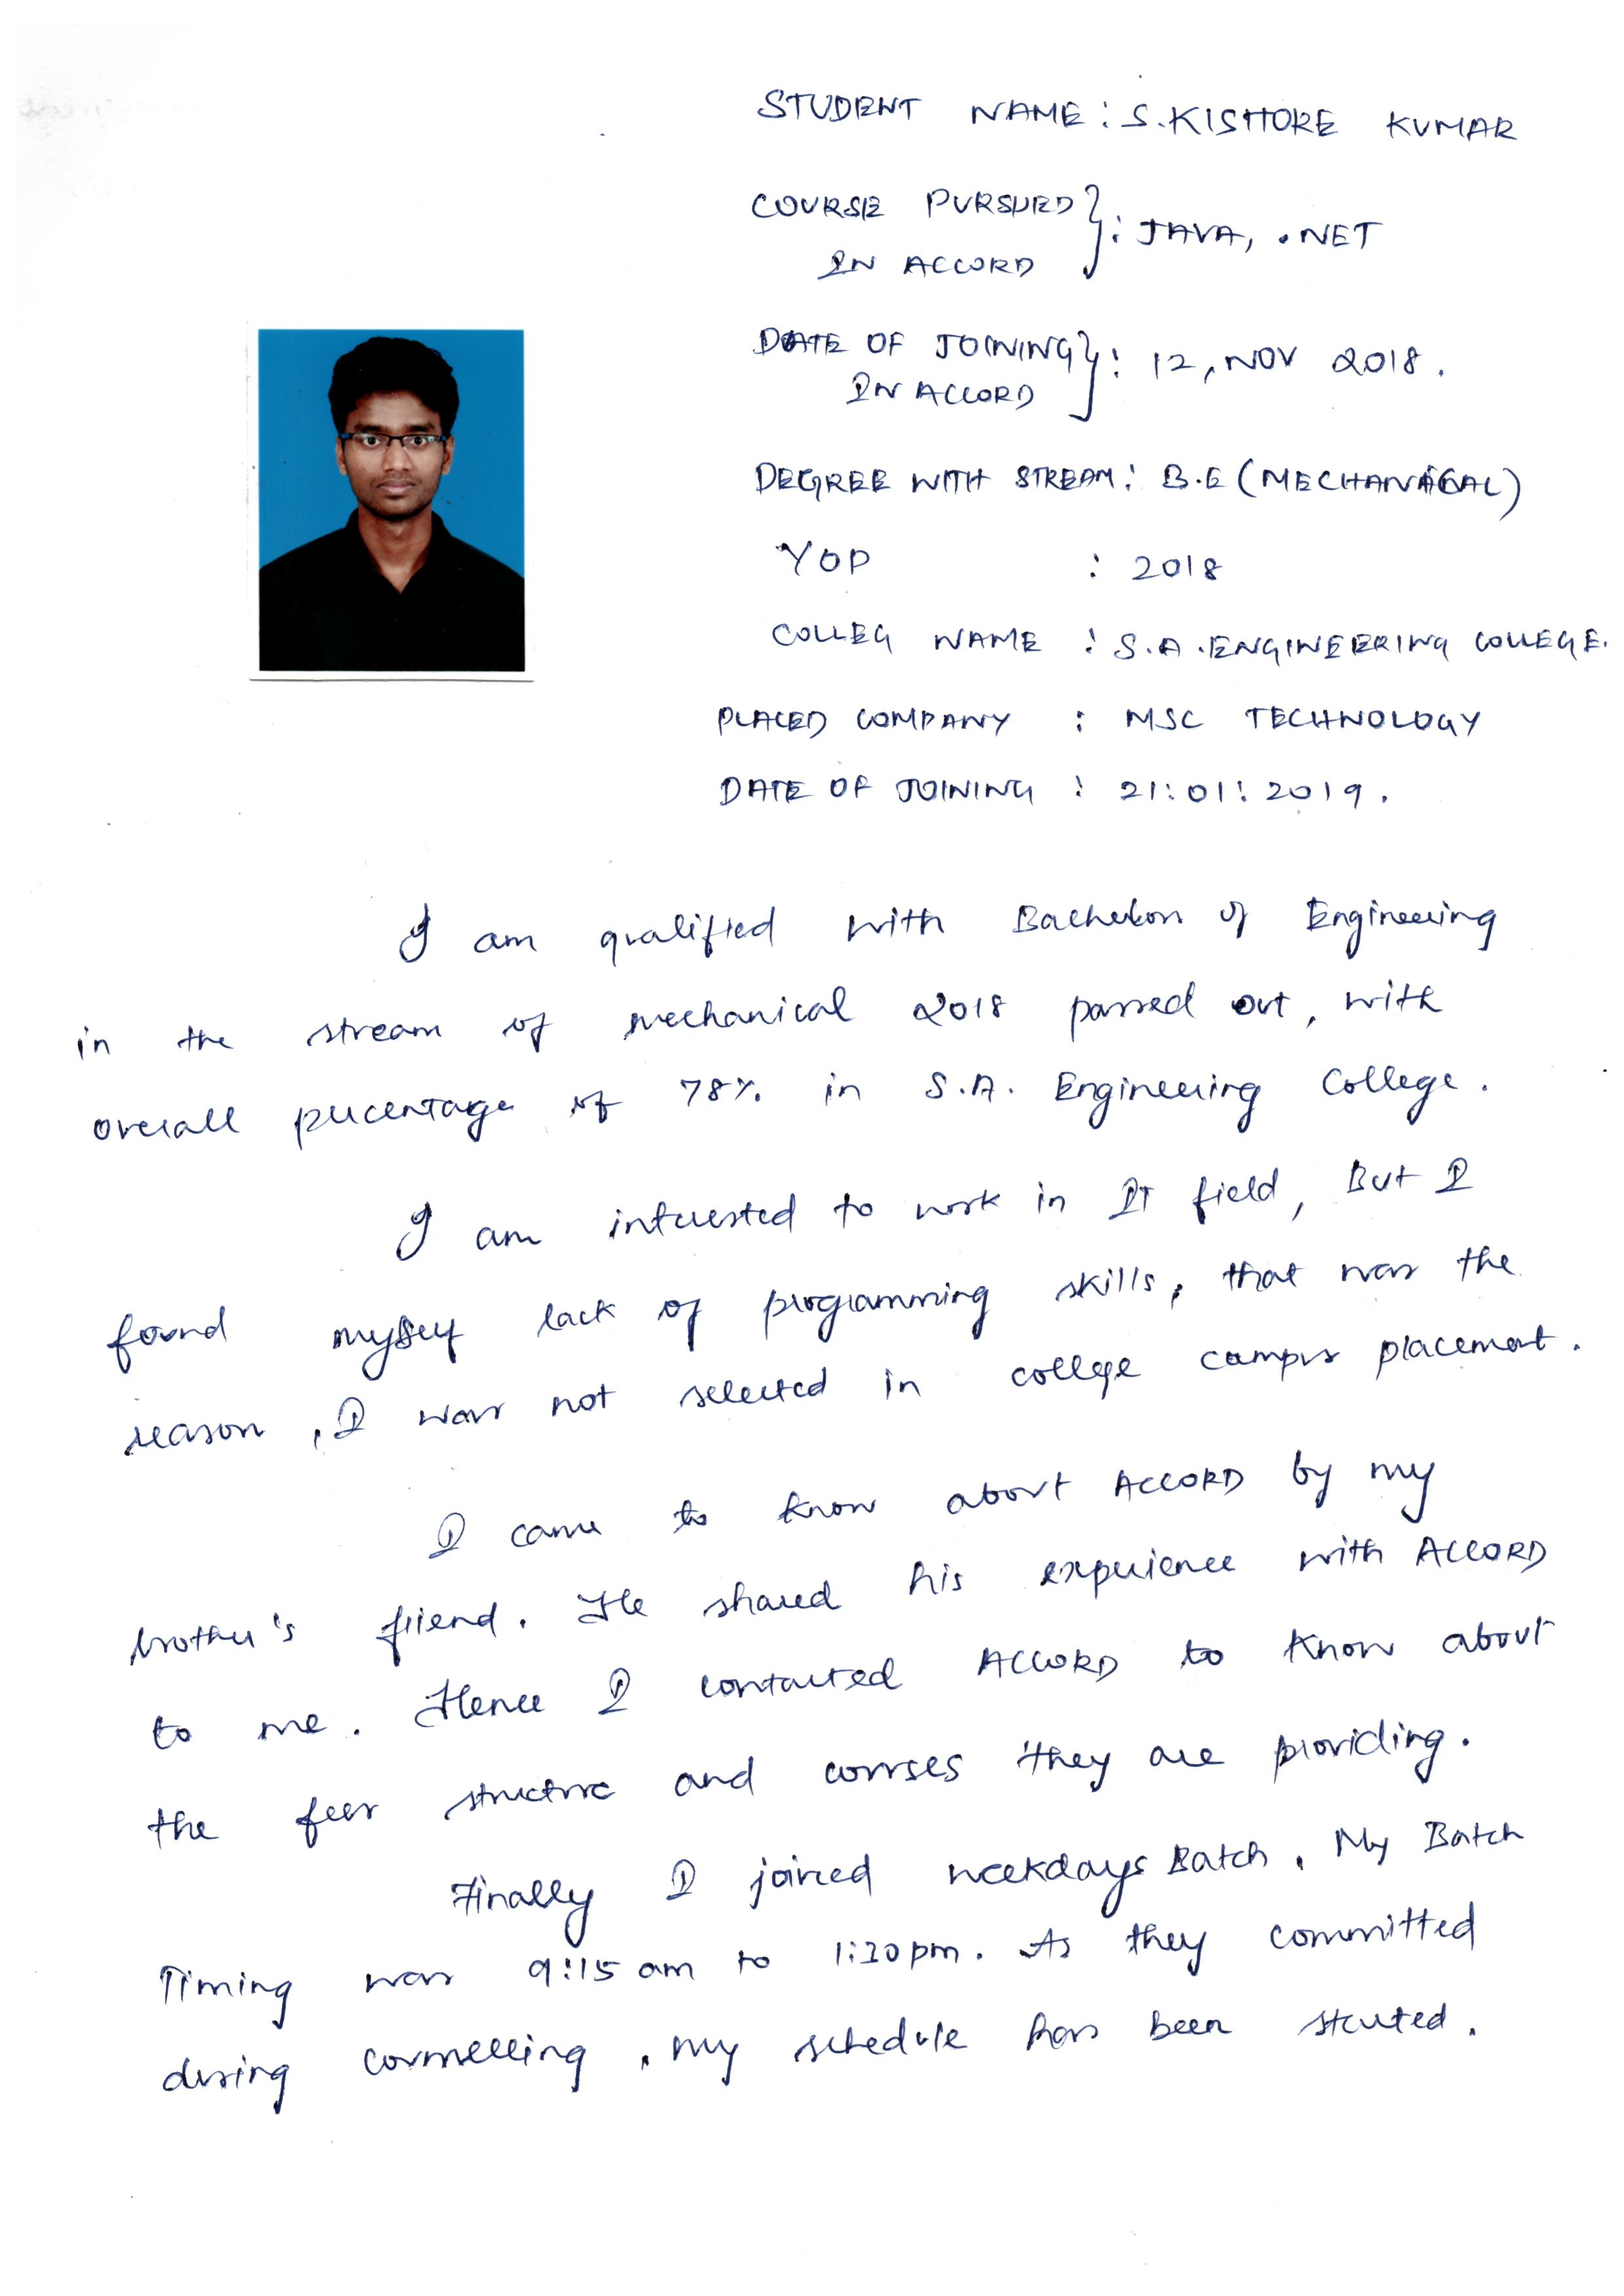 STUDENT NAME : S. KISHORE KUMAR
COURSE PURSUED } : JAVA, .NET
IN ACCORD
DATE OF JOINING } : 12, NOV 2018.
IN ACCORD
DEGREE WITH STREAM : B.E (MECHANICAL)
YOP : 2018
COLLEG NAME : S.A. ENGINEERING COLLEGE.
PLACED COMPANY : MSC TECHNOLOGY
DATE OF JOINING : 21:01:2019.
I am qualified with Bachelor of Engineering
in the stream of mechanical 2018 passed out, with
overall percentage of 78% in S.A. Engineering College.
I am interested to work in IT field, But I
found myself lack of programming skills, that was the
reason, I was not selected in college campus placement.
I came to know about ACCORD by my
brother's friend. He shared his experience with ACCORD
to me. Hence I contacted ACCORD to know about
the fees structure and courses they are providing.
Finally I joined weekdays Batch. My Batch
Timing was 9:15 am to 1:30 pm. As they committed
during counselling, my schedule has been started.